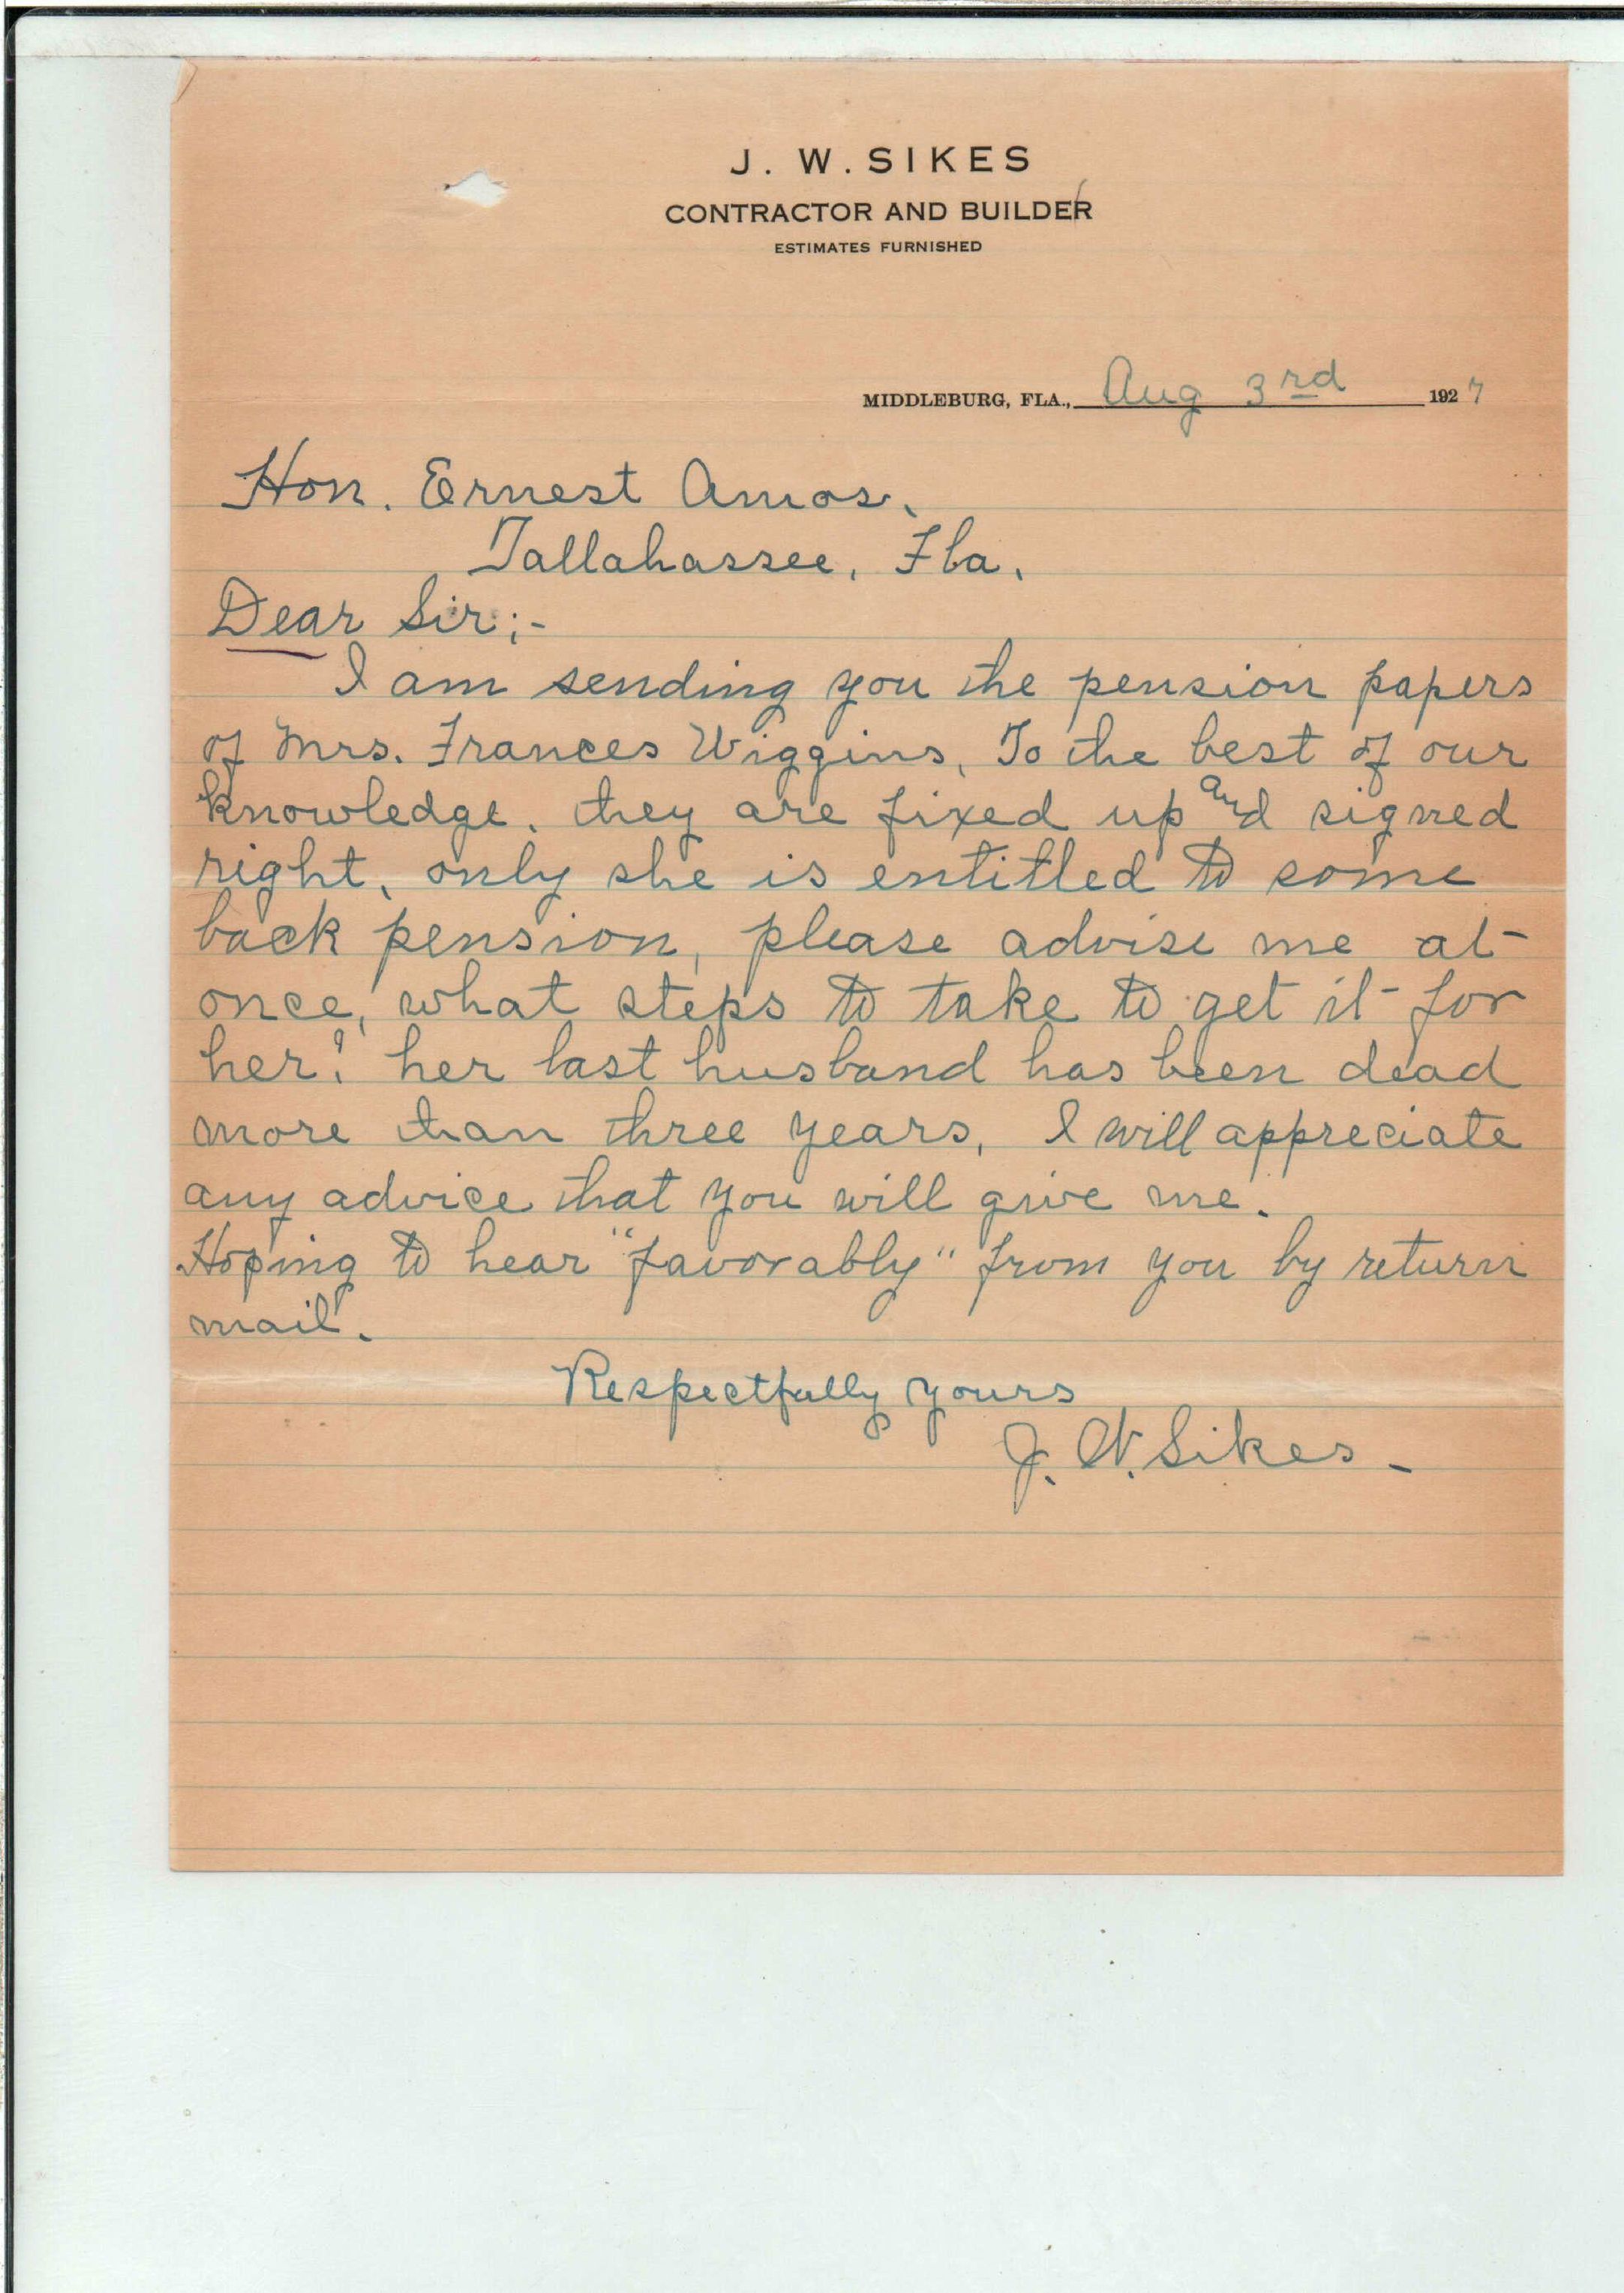 J. W. SIKES
CONTRACTOR AND BUILDER
ESTIMATES FURNISHED
MIDDLEBURG, FLA., Aug 3rd 1927
Hon. Ernest Amos,
Tallahassee, Fla.
Dear Sir;-
I am sending you the pension papers
of Mrs. Frances Wiggins, To the best of our
knowledge, they are fixed up and signed
right, only she is entitled to some
back pension, please advise me at
once, what steps to take to get it for
her? her last husband has been dead
more than three years, I will appreciate
any advice that you will give me.
Hoping to hear "favorably" from you by return
mail.
Respectfully yours
J. W. Sikes -